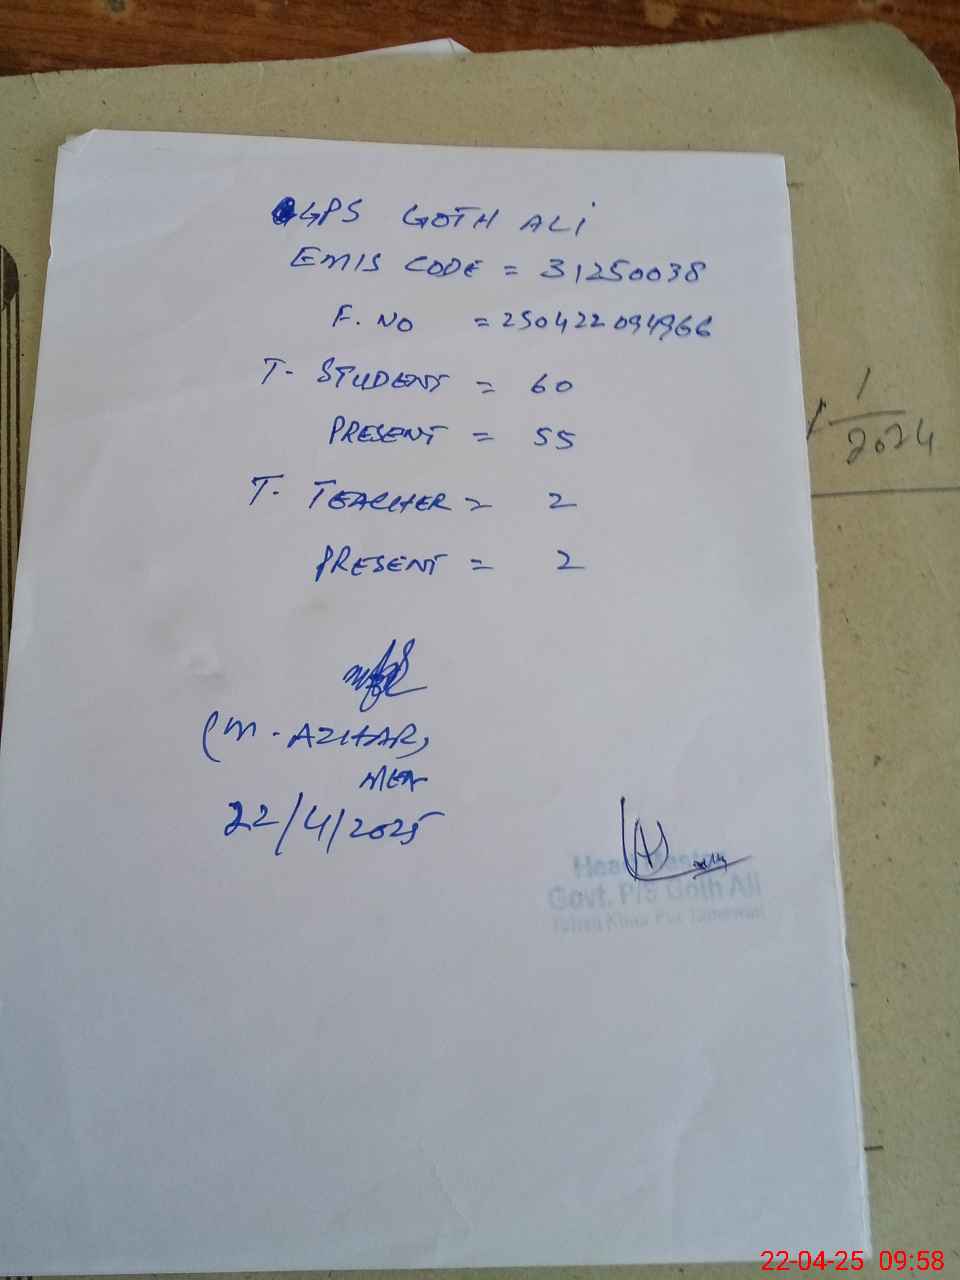 GPS GOTH ALi
EMIS CODE = 31250038
F. NO = 250422094966
T- STUDENT = 60
PRESENT = 55
T- TEACHER = 2
PRESENT = 2
(M. AZHAR)
MEA
22/4/2025
Head Master
Govt. P/S Goth Ali
1
2024
22-04-25 09:58